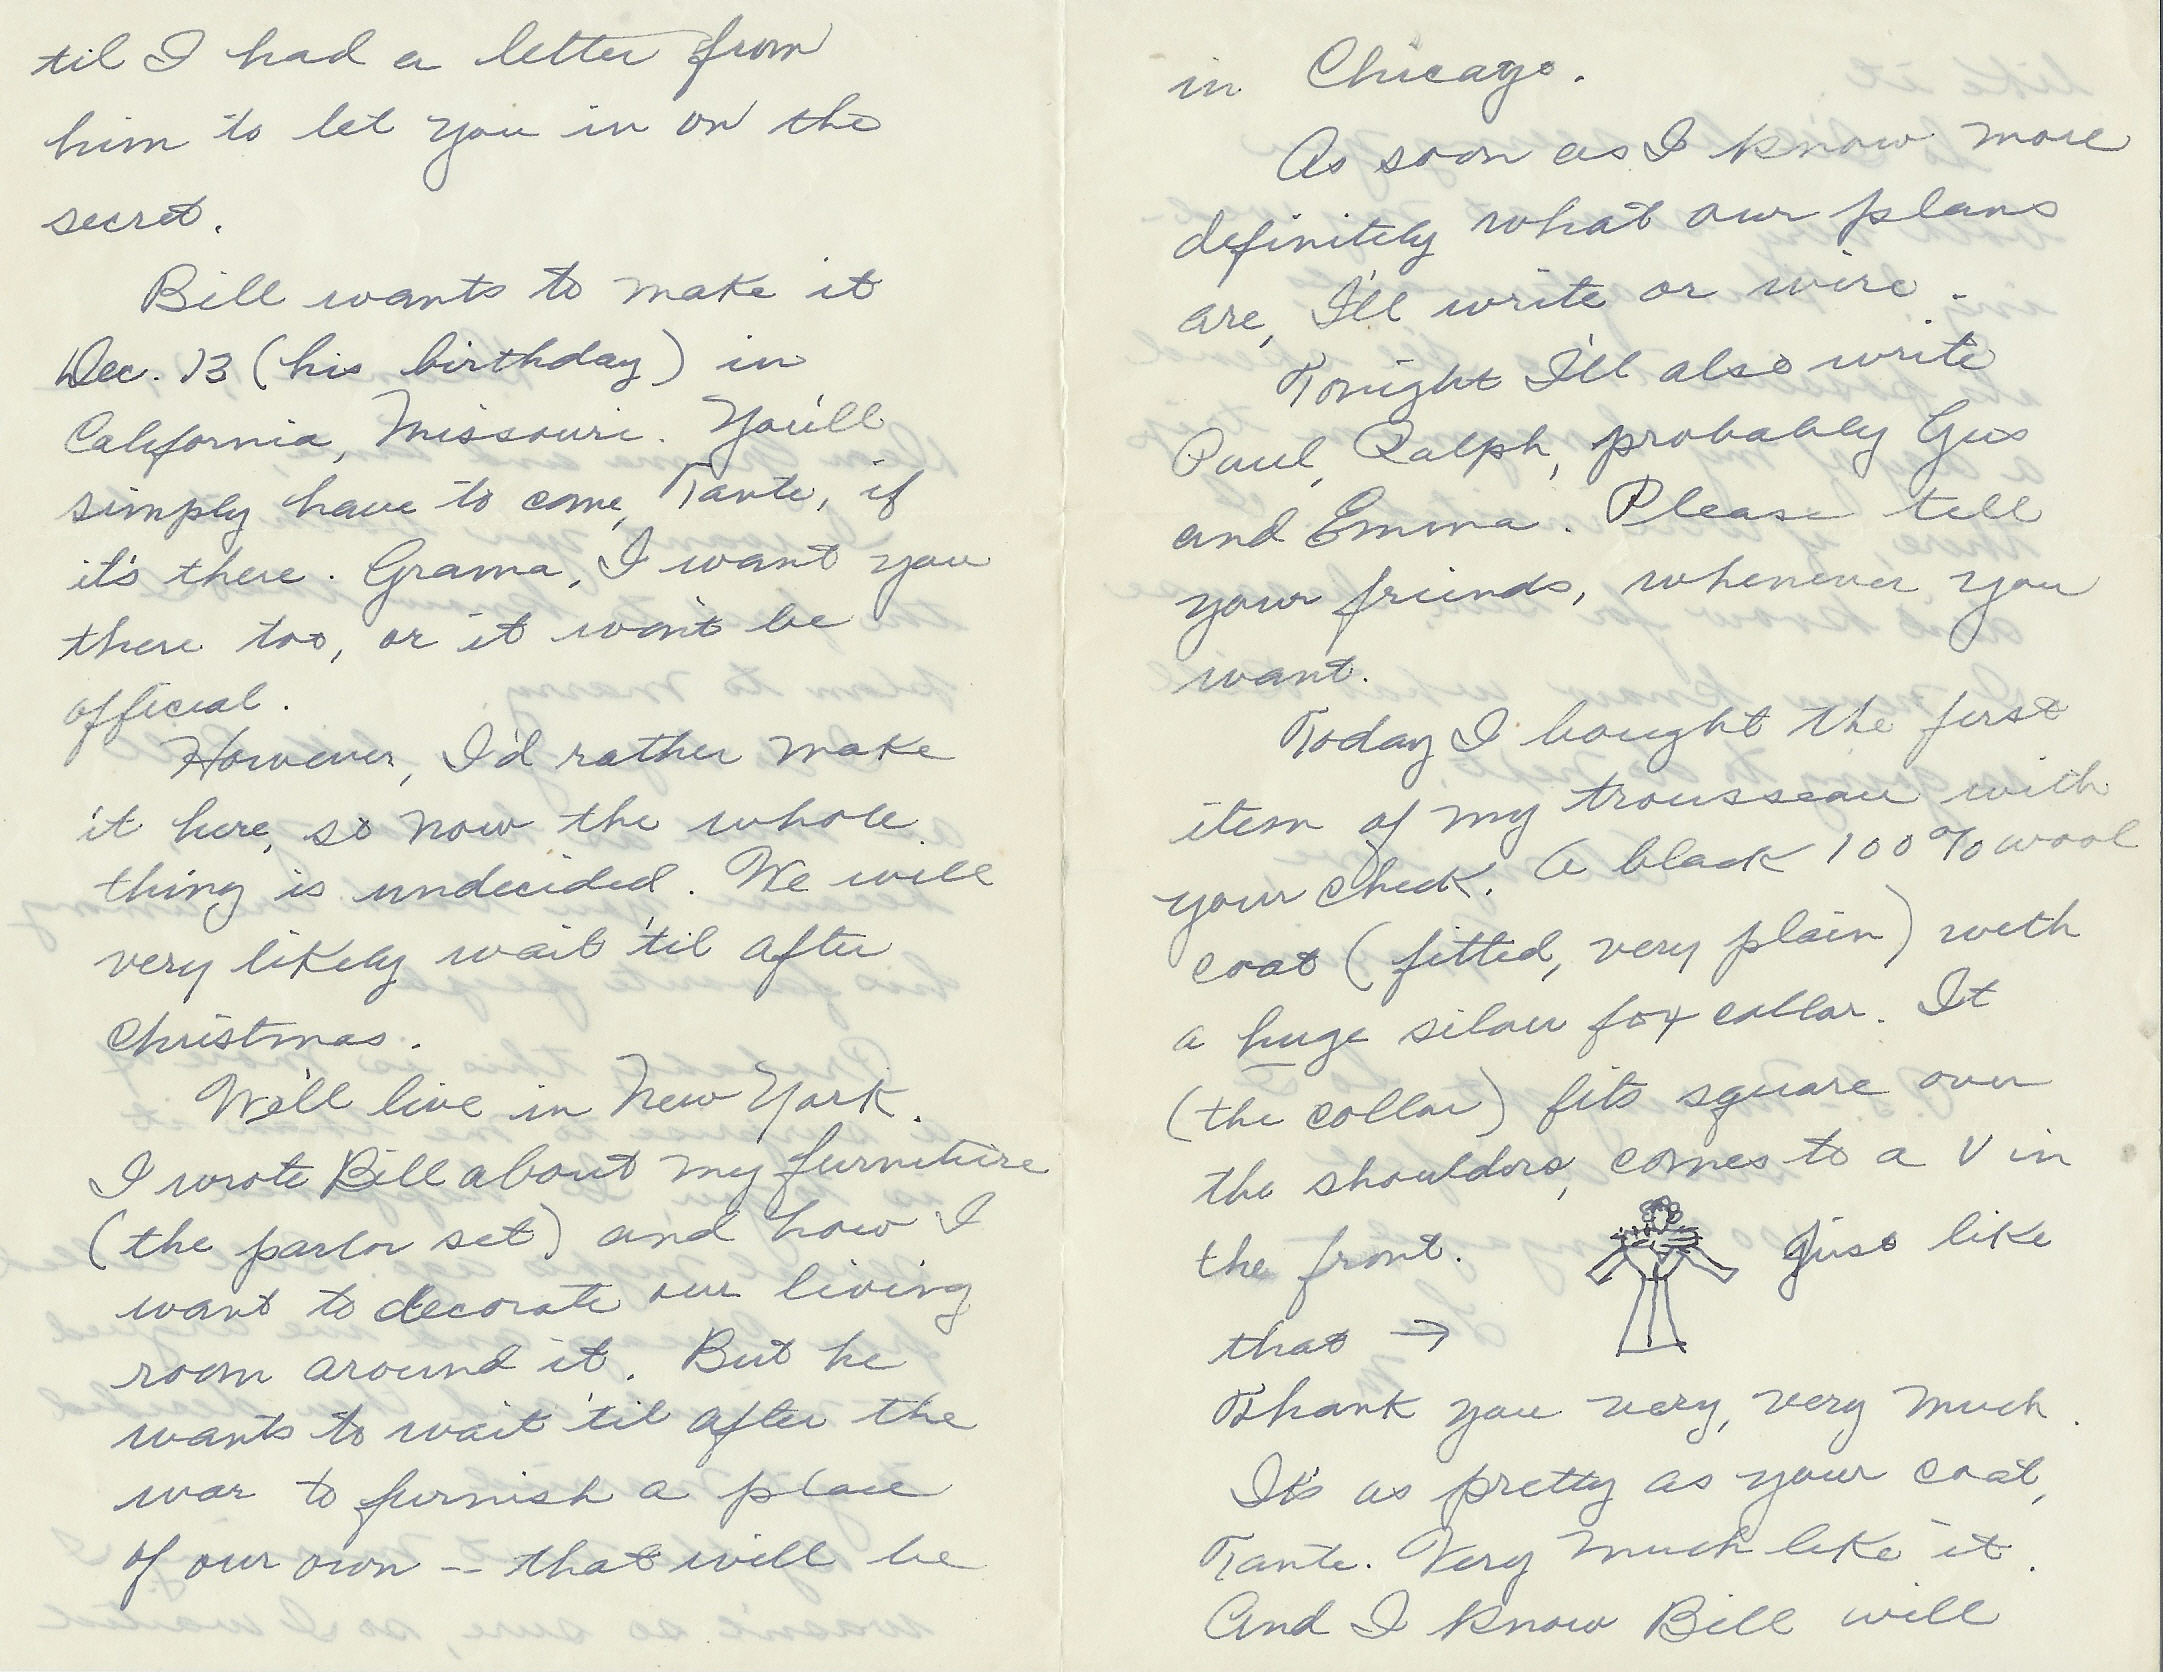 til I had a letter from
him to let you in on the
secret.
Bill wants to make it
Dec. 13 (his birthday) in
California, Missouri. You'll
simply have to come, Tante, if
it's there. Grama, I want you
there too, or it won't be
official.
However, I'd rather make
it here, so now the whole
thing is undecided. We will
very likely wait 'til after
Christmas.
We'll live in New York.
I wrote Bill about my furniture
(the parlor set) and how I
want to decorate our living
room around it. But he
wants to wait 'til after the
war to furnish a place
of our own -- that will be
in Chicago.
As soon as I know more
definitely what our plans
are, I'll write or wire.
Tonight I'll also write
Paul, Ralph, probably Gus
and Emma. Please tell
your friends, whenever you
want.
Today I bought the first
item of my trousseau with
your check. A black 100% wool
coat (fitted, very plain) with
a huge silver fox collar. It
(the collar) fits square over
the shoulders, comes to a V in
the front. Just like
that →
Thank you very, very much.
It's as pretty as your coat,
Tante. Very much like it.
And I know Bill will